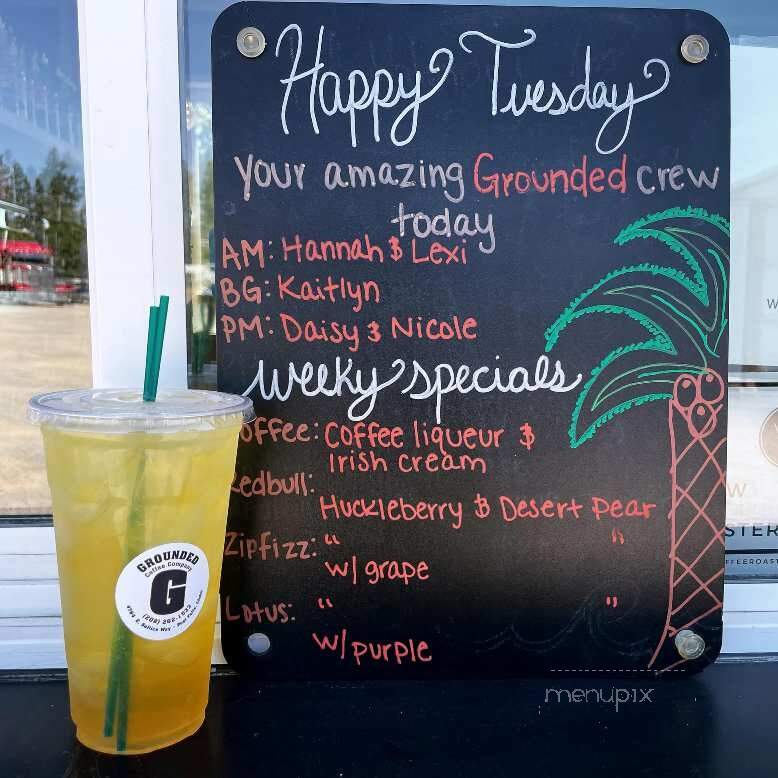 Happy Tuesday
your amazing Grounded crew
today
AM: Hannah & Lexi
BG: Kaitlyn
PM: Daisy & Nicole
weeky specials
offee: Coffee liqueur &
Irish cream
edbull:
Huckleberry & Desert pear
Zipfizz: " "
w/ grape
Lotus: " "
w/ purple
GROUNDED
Coffee Company
G
menupix
W
STER